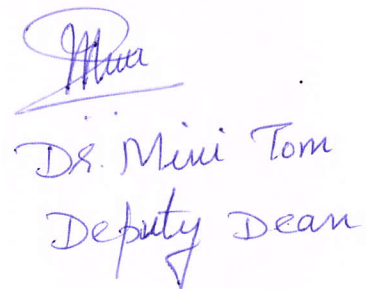 Dr. Mini Tom
Deputy Dean